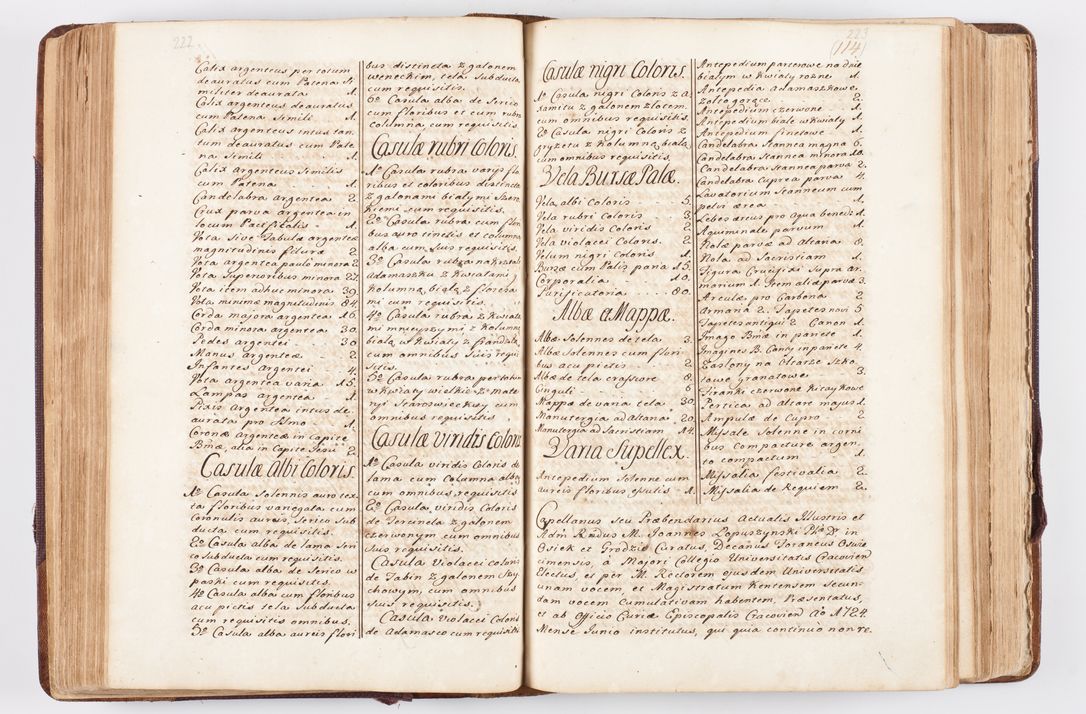 222
Calix argenteus per totum
deauratus cum Patena Si
militer deaurata 1.
Calix argenteus deauratus
cum Patena Simili 1.
Calix argenteus intus tan
tum deauratus cum Pate
na Simili 1.
Calix argenteus Similis
cum Patena 1.
Candelabra argentea 2.
Crux parva argentea in
locum Pacificalis 1.
Vota Sive Tabulæ argenteæ
magnitudinis
Vota argentea paulo minora 2
Vota Superioribus minora 27
Vota item adhuc minora 39
Vota minimæ magnitudinis 84
Corda majora argentea 16.
Corda minora argentea 30.
Pedes argentei 30
Manus argenteæ 2.
Infantes argentei 4.
Vota argentea varia 15.
Lampas argentea 1.
Pixis Argentea intus de
aurata pro 1.
Coronæ argenteæ in capite
Bmæ, alia in Capite Jesu 2.
Casulæ albi Coloris.
1o Casula Solennis auro tex
ta floribus variegata cum
Coronulis aureis, Serico Sub
ducta cum requisitis.
2o Casula alba de lama Seri
co Subducta cum requisitis.
3o Casula alba de Serico w
paski cum requisitis.
4o Casula alba cum floribus
acu pictis tela Subducta
cum requisitis omnibus.
5o Casula alba aureis flori
bus distincta z galonem
weneckim, tela Subducta
cum requisitis.
6o Casula alba de Serico
cum floribus et cum rubra
columna, cum requisitis.
Casulæ rubri Coloris.
1o Casula rubra varys flo
ribus et coloribus distincta
z galonami bialymi Szero
kiemi cum requisitis.
2o Casula rubra cum flori
bus auro tinctis et columna
alba cum Suis requisitis.
3o Casula rubra na kształt
adamaszku z kwiatami z
Kolumną białą z floresa
mi cum requisitis.
4o Casula rubra z kwiata
mi mnieyszymi z kolumną
białą w kwiaty z frandzlą,
cum omnibus Suis requi
sitis.
5o Casula rubra per totum
w kwiaty wielkie z mate
ryi Staroswieckiey cum
omnibus requisitis.
Casulæ viridis Coloris
1o Casula viridis Coloris de
lama cum Columna alba,
cum omnibus requisitis.
2o Casula viridis Coloris
de Tercinela z galonem
czerwonym cum omnibus
Suis requisitis.
Casula Violacei coloris
de Tabin z galonem Szy
chowym, cum omnibus
suis requisitis.
Casula violacei Coloris
de Adamasco cum requisitis
223
(114)
Casulæ nigri Coloris.
1o Casula nigri Coloris z a
xamitu z galonem złotem
cum omnibus requisitis.
2o Casula nigri Coloris z
gryzetu z kolumną białą
cum omnibus requisitis.
Vela Bursæ Palæ.
Vela albi Coloris 5.
Vela rubri Coloris 3.
Vela viridis Coloris 2.
Vela violacei Coloris. 2.
Velum nigri Coloris 1.
Bursæ cum Palis paria 15.
Corporalia 10.
Purificatoria 80.
Albæ et Mappæ.
Albæ Solennes de tela 3.
Albæ Solennes cum flori
bus acu pictis 2.
Albæ de tela crassiore 8.
Cinguli 6.
Mappæ de varia tela 30.
Manutergia ad Altaria 20.
Manutergia ad Sacristiam 14.
Varia Supellex.
Antepedium Solenne cum
aureis floribus 1.
Antepedium parterowe na dnie
białym w kwiaty rożne 1.
Antepedia adamaszkowe
żółto gorące 2.
Antepedium czerwone 1.
Antepedium białe w kwiaty 1.
Antepedium finetowe 1.
Candelabra Stannea magna 6.
Candelabra Stannea minora 10.
Candelabra Stannea parva 2.
Candelabra Cuprea parva 4.
Lavatorium Stanneum cum
pelvi ærea 1.
Lebes æreus pro aqua bened: 1.
Aquiminale parvum 1.
Nolæ parvæ ad altaria 8.
Nola ad Sacristiam 1.
Figura Crucifixi Supra ar.
marium 1. Item aliæ parvæ 3.
Arculæ pro Carbona 2.
Armaria 2. Tapetes novi 5
Tapetes antiqui 2. Canon 1.
Imago Bmæ in pariete 1.
Imagines B. Canty in pariete 4.
Zasłony na Ołtarze Szko
towe granatowe 3.
Firanki czerwone kitaykowe
Pertica ad altare majus 1.
Ampulæ de Cupro 2.
Missale Solenne in corni
bus Compacture argen,
to compactum 1.
Missalia festivalia 2.
Missalia de Requiem 2.
Capellanus seu Præbendarius Actualis Illustris et
Adm Rndus M. Joannes Łopuszynski D. in
Osiek et Grodzis Curatus, Decanus Foraneus Oswie
cimensis, à Majori Collegio Universitatis Cracovien
Electus, et per M. Rectorem ejusdem Universitatis
unam vocem, et Magistratum Kencensem Secun,
dam vocem Cumulativam habentem, Præsentatus,
et ab Officio Curiæ Episcopalis Cracovien Ao 1724.
Mense Junio institutus, qui quia continuò non re.